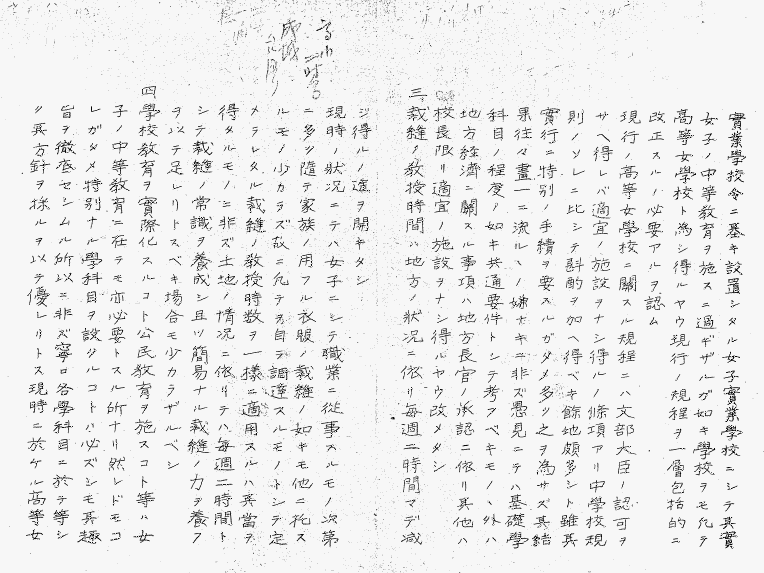 實業學校令ニ基キ設置シタル女子實業學校ニシテ其實
女子ノ中等教育ヲ施スニ過ギザルガ如キ學校ヲモ凡テ
高等女學校ト為シ得ルヤウ現行ノ規程ヲ一層包括的ニ
改正スルノ必要アルヲ認ム
現行ノ高等女學校ニ關スル規程ニハ文部大臣ノ認可ヲ
サヘ得レバ適宜ノ施設ヲナシ得ルノ條項アリ中學校規
則ノソレニ比シテ斟酌ヲ加ヘ得ベキ餘地頗多シト雖其
實行ニ特別ノ手續ヲ要スルガタメ多ク之ヲ為サズ其結
果往々畫一ニ流ルヽノ嫌ナキニ非ズ愚見ニテハ基礎學
科目ノ程度ノ如キ共通要件トシテ考フベキモノヽ外ハ
地方經濟ニ關スル事項ハ地方長官ノ承認ニ依リ其他ハ
校長限リ適宜ノ施設ヲナシ得ルヤウ改メタシ
三、裁縫ノ教授時間ハ地方ノ状況ニ依リ毎週二時間マデ減
ジ得ルノ途ヲ開キタシ
現時ノ状況ニテハ女子ニシテ職業ニ從事スルモノ次第
ニ多ク隨テ家族ノ用フル衣服ノ裁縫ノ如キモ他ニ托ス
ルモノ少カラズ故ニ凡テヲ自ラ調達スルモノトシテ定
メラレタル裁縫ノ教授時数ヲ一様ニ適用スルハ其當ヲ
得タルモノニ非ズ土地ノ情況ニ依リテハ毎週二時間ト
シテ裁縫ノ常識ヲ養成シ且ツ簡易ナル裁縫ノ力ヲ養フ
ヲ以テ足レリトスベキ場合モ少カラザルベシ
四、學校教育ヲ實際化スルコト公民教育ヲ施スコト等ハ女
子ノ中等教育ニ在テモ亦必要トスル所ナリ然レドモコ
レガタメ特別ナル學科目ヲ設クルコトハ必ズシモ其趣
旨ヲ徹底セシムル所以ニ非ズ寧ロ各學科目ニ於テ等シ
ク其方針ヲ採ルヲ以テ優レリトス現時ニ於ケル高等女